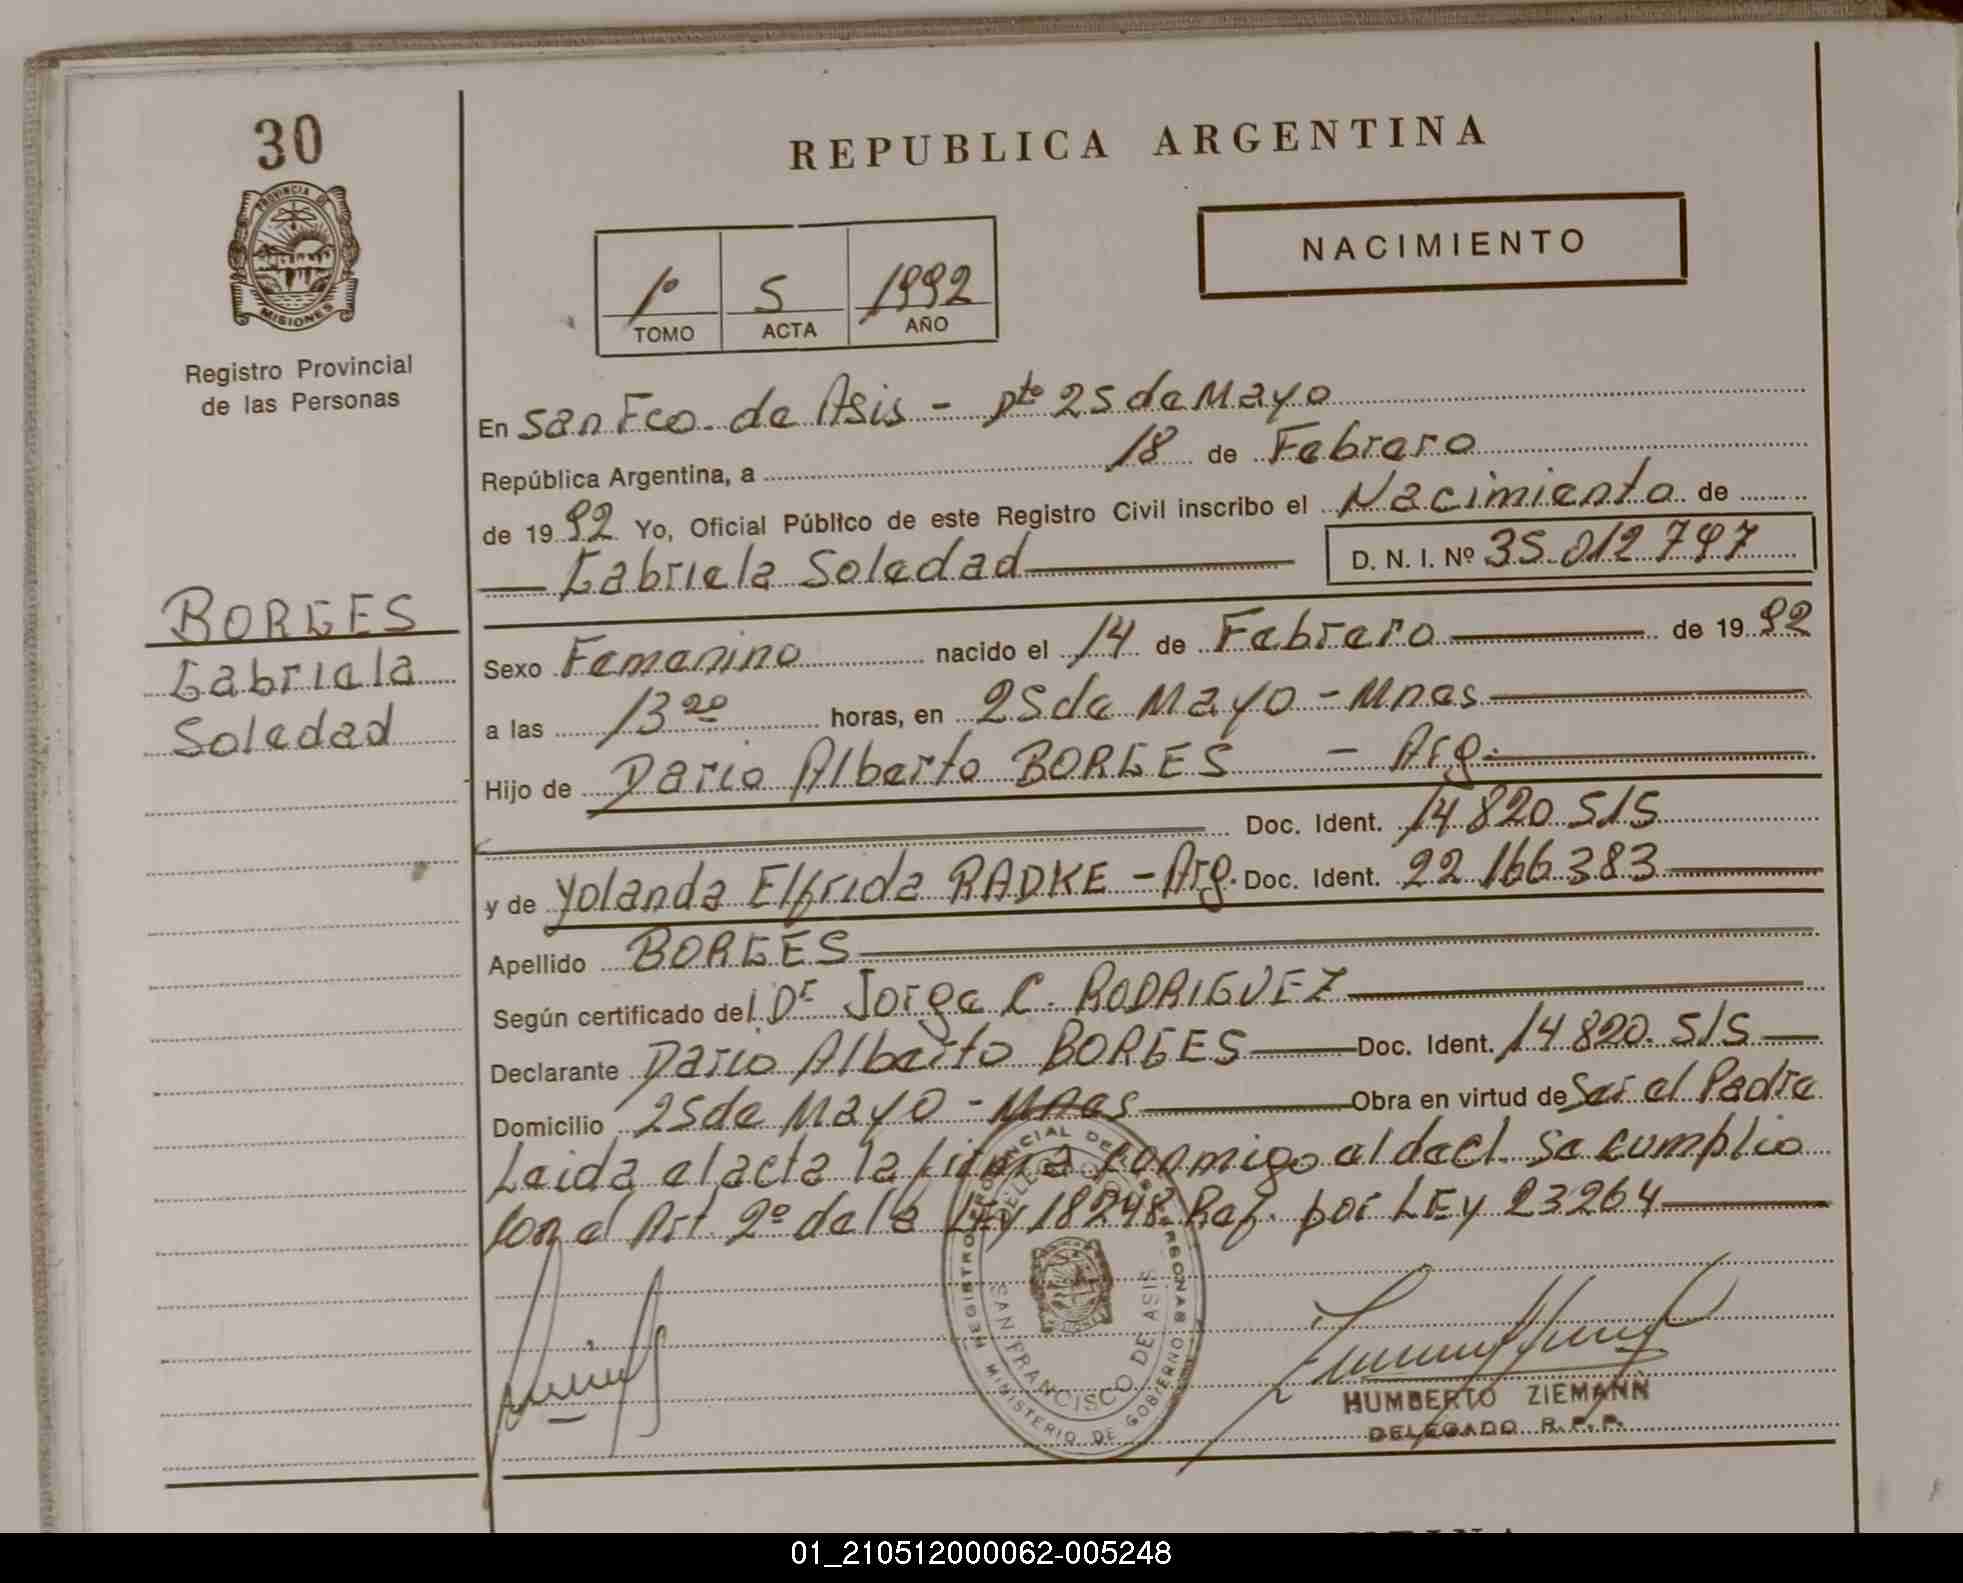 30
PROVINCIA DE
MISIONES
Registro Provincial
de las Personas
REPUBLICA ARGENTINA
NACIMIENTO
1º 5 1992
TOMO ACTA AÑO
En San Fco. de Asis - Dto 25 de Mayo
República Argentina, a 18 de Febrero
de 1992 Yo, Oficial Público de este Registro Civil inscribo el Nacimiento de
Gabriela Soledad D. N. I. Nº 35.012797
BORGES
Gabriela
Soledad
Sexo Femenino nacido el 14 de Febrero de 1992
a las 13 20 horas, en 25 de Mayo - Mnes
Hijo de Dario Alberto BORGES - Arg.
Doc. Ident. 14.820.515
y de Yolanda Elfrida RADKE - Arg. Doc. Ident. 22.166.383
Apellido BORGES
Según certificado del Dr Jorge C. RODRIGUEZ
Declarante Dario Alberto BORGES Doc. Ident. 14.820.515
Domicilio 25 de Mayo - Mnes Obra en virtud de Ser el Padre
Leida el acta la firma conmigo el decl. Se cumplio
con el Art. 2º de la Ley 18248. Ref. por LEy 23264
MINISTERIO DE GOBIERNO
SAN FRANCISCO DE ASIS
HUMBERTO ZIEMANN
DELEGADO R.P.P.
01_210512000062-005248